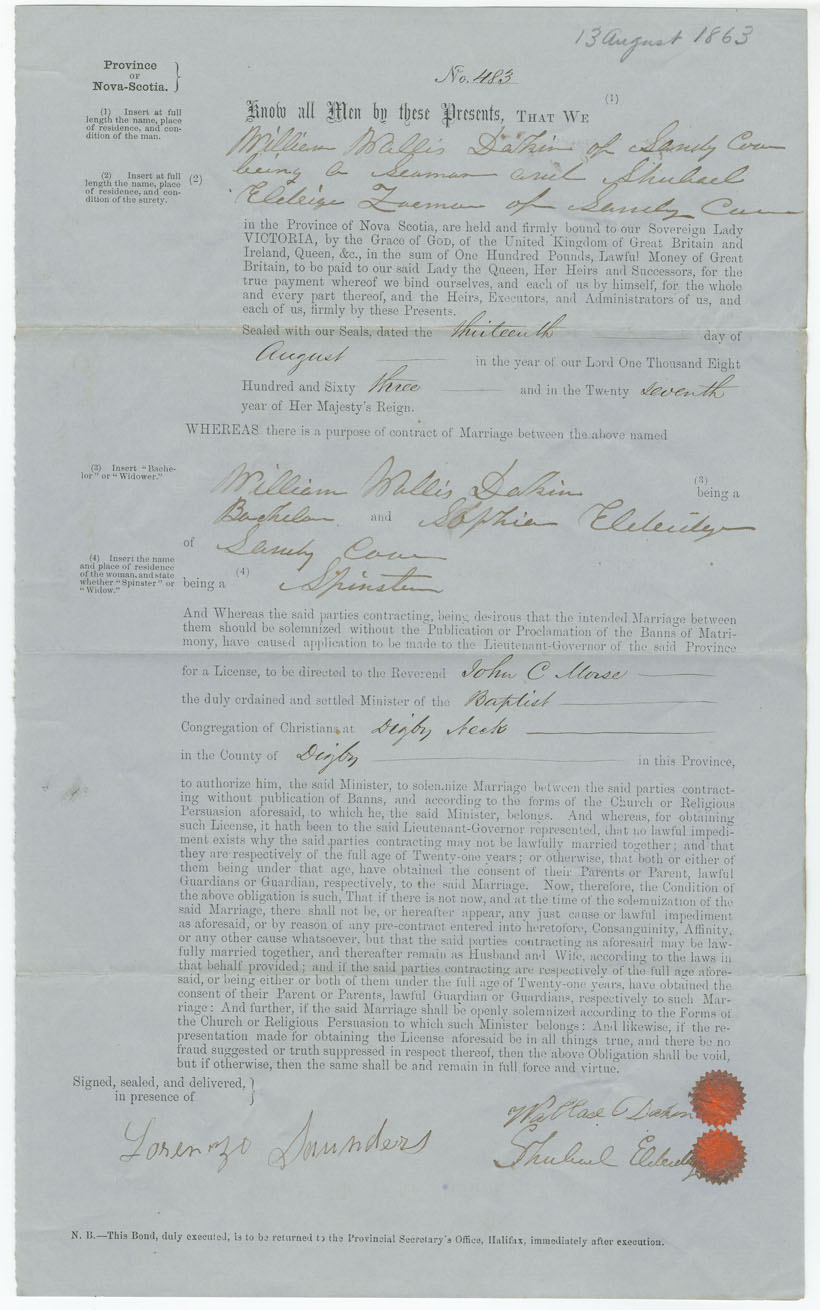 13 August 1863
Province
OF
Nova-Scotia. }
No. 483
(1) Insert at full
length the name, place
of residence, and con-
dition of the man.
(1)
Know all Men by these Presents, THAT WE
William Wallis Dakin of Sandy Cove
(2) Insert at full
length the name, place
of residence, and con-
dition of the surety.
(2)
being a Seaman and Shubael
Eldrige of Sandy Cove
in the Province of Nova Scotia, are held and firmly bound to our Sovereign Lady
VICTORIA, by the Grace of GOD, of the United Kingdom of Great Britain and
Ireland, Queen, &c., in the sum of One Hundred Pounds, Lawful Money of Great
Britain, to be paid to our said Lady the Queen, Her Heirs and Successors, for the
true payment whereof we bind ourselves, and each of us by himself, for the whole
and every part thereof, and the Heirs, Executors, and Administrators of us, and
each of us, firmly by these Presents.
Sealed with our Seals, dated the thirteenth day of
August in the year of our Lord One Thousand Eight
Hundred and Sixty three and in the Twenty seventh
year of Her Majesty's Reign.
WHEREAS there is a purpose of contract of Marriage between the above named
(3) Insert "Bache-
lor" or "Widower."
William Wallis Dakin (3) being a
Bachelor and Sophia Elderidge
of Sandy Cove
(4) Insert the name
and place of residence
of the woman, and state
whether "Spinster" or
"Widow."
being a (4) Spinster
And Whereas the said parties contracting, being desirous that the intended Marriage between
them should be solemnized without the Publication or Proclamation of the Banns of Matri-
mony, have caused application to be made to the Lieutenant-Governor of the said Province
for a License, to be directed to the Reverend John C Morse
the duly ordained and settled Minister of the Baptist
Congregation of Christians at Digby Neck
in the County of Digby in this Province,
to authorize him, the said Minister, to solemnize Marriage between the said parties contract-
ing without publication of Banns, and according to the forms of the Church or Religious
Persuasion aforesaid, to which he, the said Minister, belongs. And whereas, for obtaining
such License, it hath been to the said Lieutenant-Governor represented, that no lawful impedi-
ment exists why the said parties contracting may not be lawfully married together; and that
they are respectively of the full age of Twenty-one years; or otherwise, that both or either of
them being under that age, have obtained the consent of their Parents or Parent, lawful
Guardians or Guardian, respectively, to the said Marriage. Now, therefore, the Condition of
the above obligation is such, That if there is not now, and at the time of the solemnization of the
said Marriage, there shall not be, or hereafter appear, any just cause or lawful impediment
as aforesaid, or by reason of any pre-contract entered into heretofore, Consanguinity, Affinity,
or any other cause whatsoever, but that the said parties contracting as aforesaid may be law-
fully married together, and thereafter remain as Husband and Wife, according to the laws in
that behalf provided; and if the said parties contracting are respectively of the full age afore-
said, or being either or both of them under the full age of Twenty-one years, have obtained the
consent of their Parent or Parents, lawful Guardian or Guardians, respectively to such Mar-
riage: And further, if the said Marriage shall be openly solemnized according to the Forms of
the Church or Religious Persuasion to which such Minister belongs: And likewise, if the re-
presentation made for obtaining the License aforesaid be in all things true, and there be no
fraud suggested or truth suppressed in respect thereof, then the above Obligation shall be void,
but if otherwise, then the same shall be and remain in full force and virtue.
Signed, sealed, and delivered, }
in presence of
Wallace Dakon
Lorenzo Saunders
Shubael Elderidge
N. B.—This Bond, duly executed, is to be returned to the Provincial Secretary's Office, Halifax, immediately after execution.